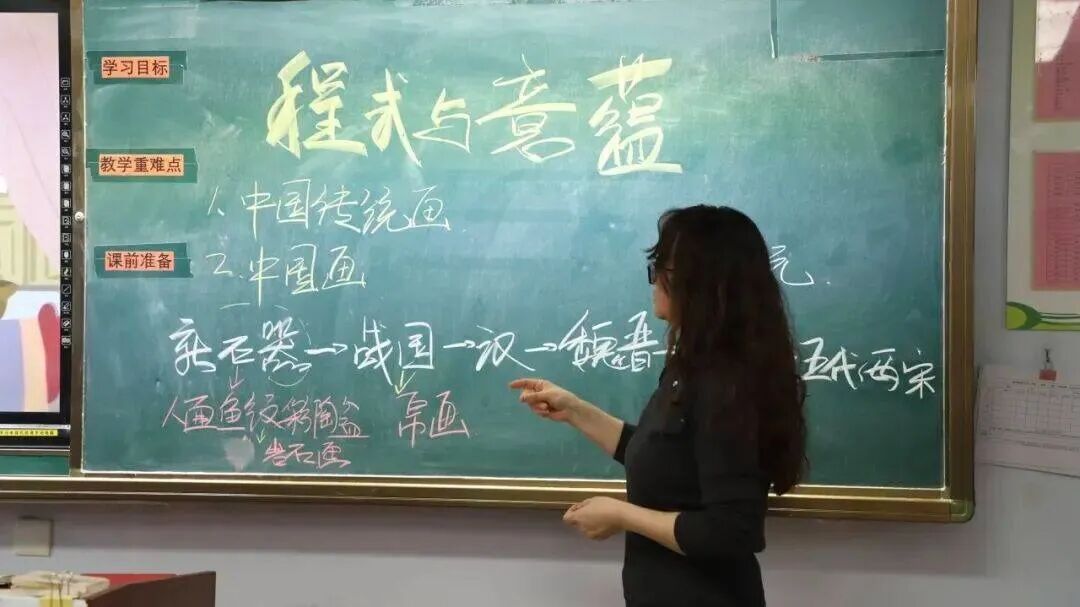 学习目标
程式与意蕴
教学重难点
1.中国传统画
课前准备
2.中国画
新石器→战国→汉→魏晋
五代两宋
人面鱼纹彩陶盆 帛画
岩石画